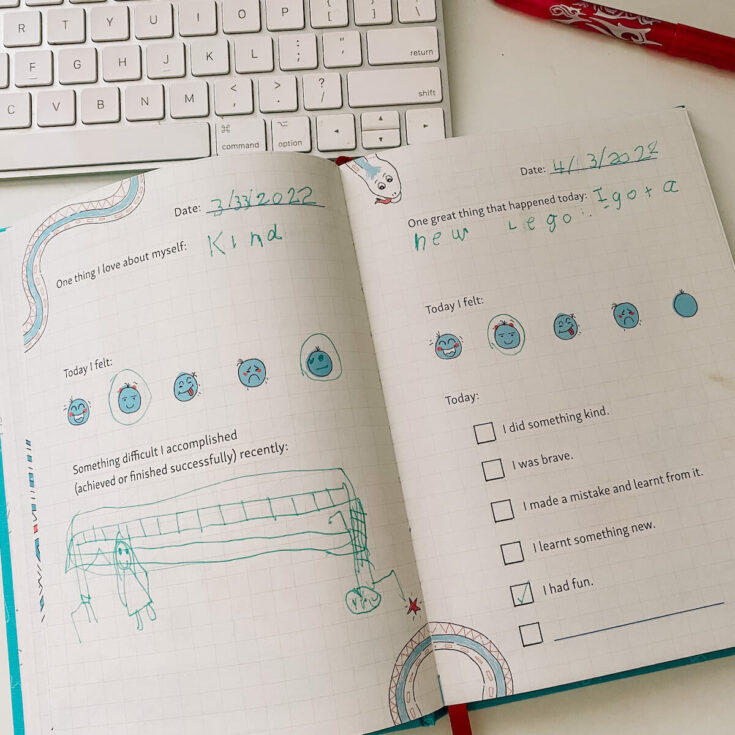 R T Y U I O P { [ } ] | \
F G H J K L : ; " ' return
C V B N M < , > . ? / shift
⌘ command ⌥ option
Date: 3/33/2022
One thing I love about myself: Kind
Today I felt:
Something difficult I accomplished
(achieved or finished successfully) recently:
Date: 4/13/2022
One great thing that happened today: I got a
new Lego
Today I felt:
Today:
I did something kind.
I was brave.
I made a mistake and learnt from it.
I learnt something new.
I had fun.